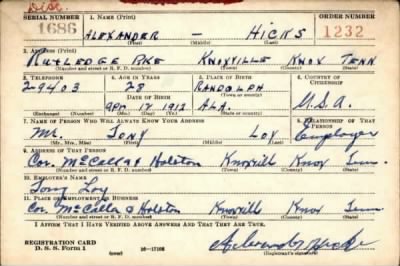 Dist.
SERIAL NUMBER 1. NAME (Print) ORDER NUMBER
1686 ALEXANDER — HICKS 1232
(First) (Middle) (Last)
2. ADDRESS (Print)
RUTLEDGE PKE KNOXVILLE KNOX TENN
(Number and street or R. F. D. number) (Town) (County) (State)
3. TELEPHONE 4. AGE IN YEARS 5. PLACE OF BIRTH 6. COUNTRY OF CITIZENSHIP
2-9403 28 RANDOLPH
DATE OF BIRTH (Town or county)
APR 17 1912 ALA. U.S.A.
(Exchange) (Number) (Mo.) (Day) (Yr.) (State or country)
7. NAME OF PERSON WHO WILL ALWAYS KNOW YOUR ADDRESS 8. RELATIONSHIP OF THAT PERSON
Mr. Tony Loy Employer
(Mr., Mrs., Miss) (First) (Middle) (Last)
9. ADDRESS OF THAT PERSON
Cor. McCalla & Holston Knoxvill Knox Tenn.
(Number and street or R. F. D. number) (Town) (County) (State)
10. EMPLOYER'S NAME
Tony Loy
11. PLACE OF EMPLOYMENT OR BUSINESS
Cor. McCalla & Holston Knoxvill Knox Tenn
(Number and street or R. F. D. number) (Town) (County) (State)
I AFFIRM THAT I HAVE VERIFIED ABOVE ANSWERS AND THAT THEY ARE TRUE.
REGISTRATION CARD
D. S. S. Form 1 (over) 16—17105 Alexander Hicks
(Registrant's signature)